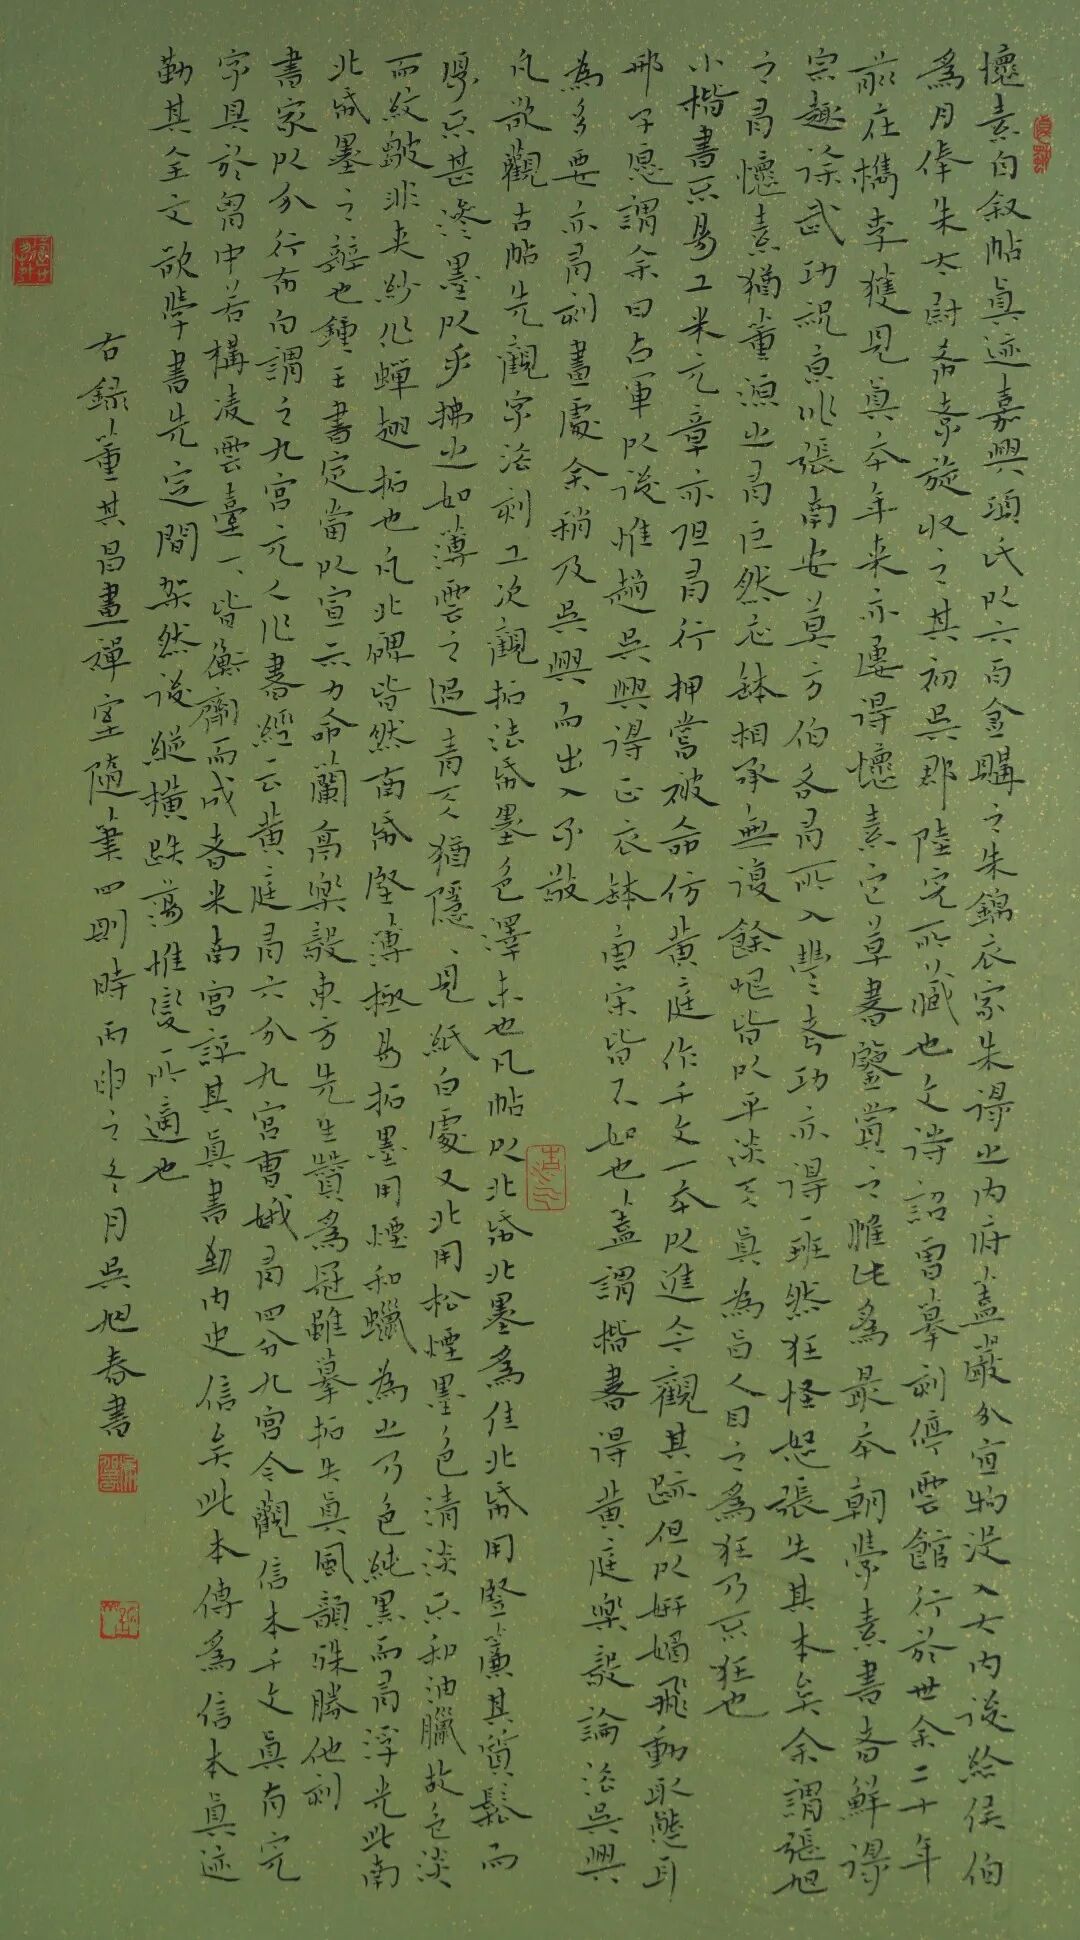 懷素自敘帖真迹嘉興項氏以六百金購之朱錦衣家朱得之內府蓋嚴分宜物沒入大內後給侯伯
為月俸朱太尉希孝旋收之其初吳郡陸完所藏也文待詔曾摹刻停雲館行於世余二十年
前在檇李獲見真本年來亦屢得懷素它草書鑒賞之惟此為最本朝學素書者鮮得
宗趣徐武功祝京兆張南安莫方伯各有所入豐考功亦得一班然狂怪怒張失其本矣余謂張旭
之有懷素猶董源之有巨然衣鉢相承無復餘恨皆以平淡天真為旨人目之為狂乃不狂也
小楷書不易工米元章亦但有行押嘗被命仿黃庭作千文一本以進今觀其跡但以妍媚飛動取態耳
邢子愿謂余曰右軍以後惟趙吳興得正衣鉢唐宋皆不如也蓋謂楷書得黃庭樂毅論法吳興
為多要亦有刻畫處余稍及吳興而出入子敬
凡欲觀古帖先觀字法刻工次觀拓法紙墨色澤末也凡帖以北紙北墨為佳北紙用豎簾其質鬆而
厚不甚滲墨以手拂之如薄雲之過青天猶隱丶見紙白處又北用松煙墨色清淡不和油臘故色淡
而紋皺非夾紗作蟬翅拓也凡北碑皆然南紙堅薄極易拓墨用煙和蠟為之乃色純黑而有浮光此南
北紙墨之辨也鍾王書定當以宣示力命蘭亭樂毅東方先生贊為冠雖摹拓失真風韻殊勝他刻
書家以分行布白謂之九宮元人作書經云黃庭有六分九宮曹娥有四分九宮今觀信本千文真有完
字具於胸中若構凌雲臺一丶皆衡齊而成者米南宮評其真書到內史信矣此本傳為信本真迹
勒其全文欲學書先定間架然後縱橫跌蕩惟變所適也
右錄董其昌畫禪室隨筆四則時丙申之冬月吳旭春書